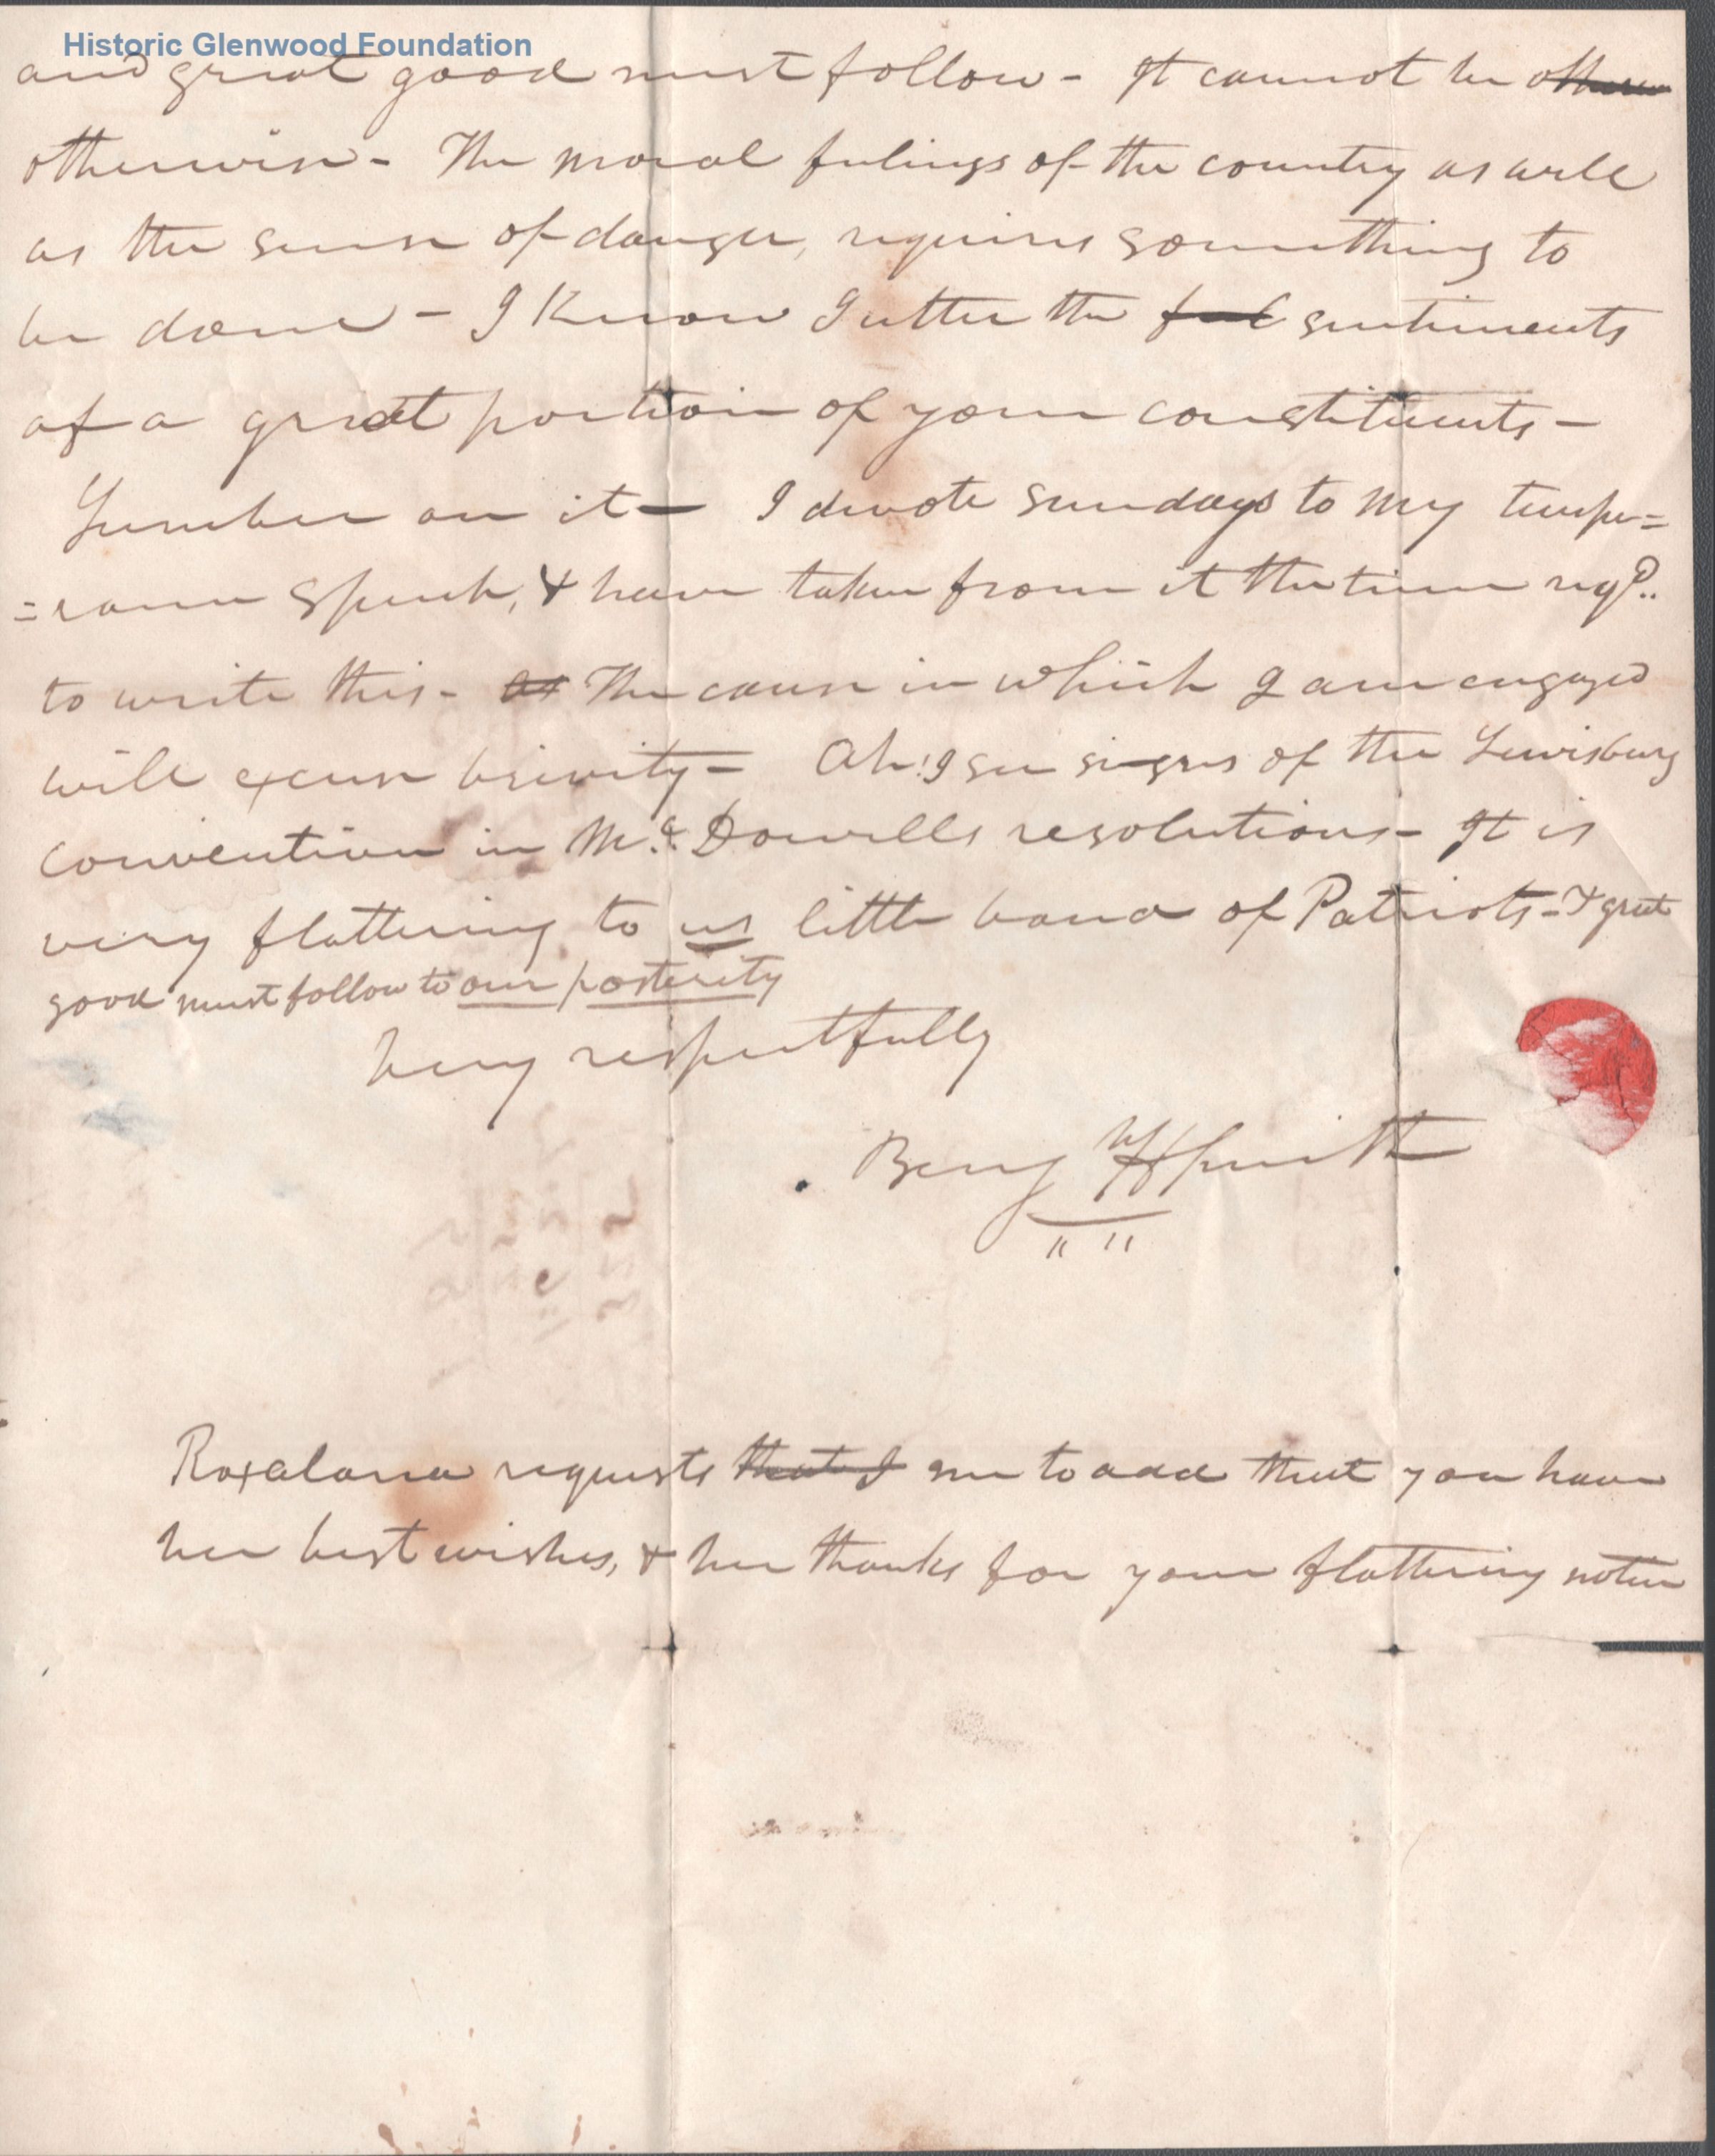 Historic Glenwood Foundation
and great good must follow - It cannot be other
otherwise - The moral feelings of the country as well
as the sense of danger, requires something to
be done - I Know I utter the feel sentiments
of a great portion of your constituents -
on it - I devote sundays to my tempe=
=rance Speech, & have taken from it the time reqd..
to write this - The cause in which I am engaged
will excuse brevity - Ah! I see signs of the Lewisburg
convention in Mc.Dowells resolutions - It is
very flattering to us little band of Patriots - & great
good must follow to our posterity
Very respectfully
Benj H Smith
" "
Roxalana requests that I me to add that you have
her best wishes, & her thanks for your flattering notice